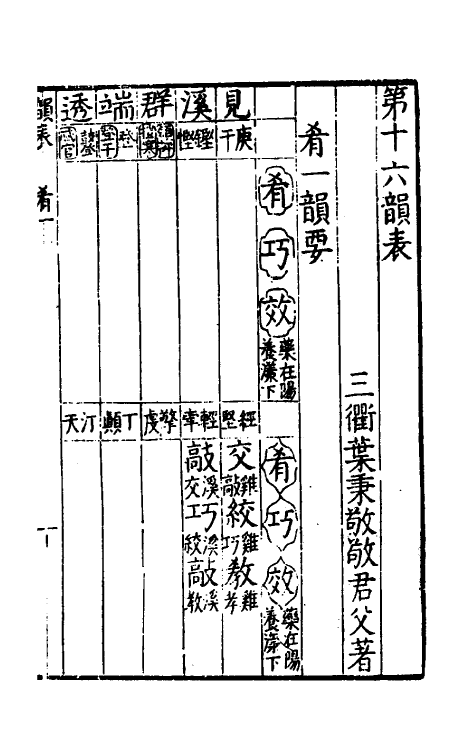 第十六韻表
三衢葉秉敬敬君父著
肴一韻要
肴 巧 效 藥在陽養漾下
肴 巧 效 藥在陽養漾下
見 庚干
經堅 交 雞敲 絞 雞巧 教 雞孝
溪 鏗慳
輕牽 敲 溪交 巧 溪絞 敲 溪教
群
擎虔
端 登
丁顛
透
汀天
韻表 肴一